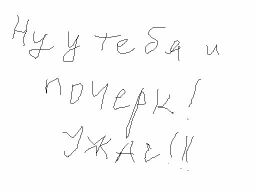 Ну у тебя и
почерк!
УЖАС!!!